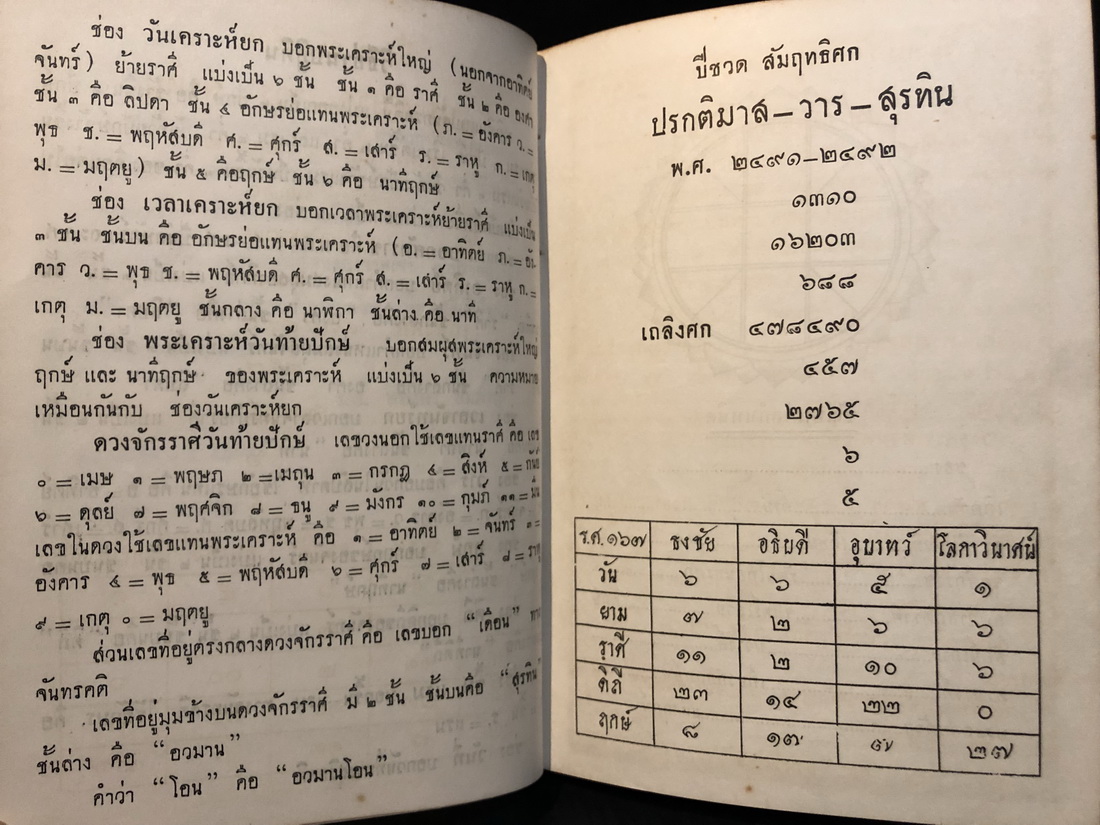 ช่อง วันเคราะห์ยก บอกพระเคราะห์ใหญ่ (นอกจากอาทิตย์
จันทร์) ย้ายราศี แบ่งเป็น ๖ ชั้น ชั้น ๑ คือ ราศี ชั้น ๒ คือ องศา
ชั้น ๓ คือ ลิปดา ชั้น ๔ อักษรย่อแทนพระเคราะห์ (ภ. = อังคาร ว. =
พุธ ช. = พฤหัสบดี ศ. = ศุกร์ ส. = เสาร์ ร. = ราหู ก. = เกตุ
ม. = มฤตยู) ชั้น ๕ คือฤกษ์ ชั้น ๖ คือ นาทีฤกษ์
ช่อง เวลาเคราะห์ยก บอกเวลาพระเคราะห์ย้ายราศี แบ่งเป็น
๓ ชั้น ชั้นบน คือ อักษรย่อแทนพระเคราะห์ (อ. = อาทิตย์ ภ. = อัง-
คาร ว. = พุธ ช. = พฤหัสบดี ศ. = ศุกร์ ส. = เสาร์ ร. = ราหู ก. =
เกตุ ม. = มฤตยู ชั้นกลาง คือ นาฬิกา ชั้นล่าง คือ นาที
ช่อง พระเคราะห์วันท้ายปักษ์ บอกสมผุสพระเคราะห์ใหญ่
ฤกษ์ และ นาทีฤกษ์ ของพระเคราะห์ แบ่งเป็น ๖ ชั้น ความหมาย
เหมือนกันกับ ช่องวันเคราะห์ยก
ดวงจักรราศีวันท้ายปักษ์ เลขวงนอกใช้เลขแทนราศี คือ เลข
๐ = เมษ ๑ = พฤษภ ๒ = เมถุน ๓ = กรกฎ ๔ = สิงห์ ๕ = กันย์
๖ = ดุลย์ ๗ = พฤศจิก ๘ = ธนู ๙ = มังกร ๑๐ = กุมภ์ ๑๑ = มีน
เลขในดวงใช้เลขแทนพระเคราะห์ คือ ๑ = อาทิตย์ ๒ = จันทร์ ๓ =
อังคาร ๔ = พุธ ๕ = พฤหัสบดี ๖ = ศุกร์ ๗ = เสาร์ ๘ = ราหู
๙ = เกตุ ๐ = มฤตยู
ส่วนเลขที่อยู่ตรงกลางดวงจักรราศี คือ เลขบอก “เดือน” ทาง
จันทรคติ
เลขที่อยู่มุมข้างบนดวงจักรราศี มี ๒ ชั้น ชั้นบนคือ “สุรทิน”
ชั้นล่าง คือ “อวมาน”
คำว่า “โอน” คือ “อวมานโอน”
ปีชวด สัมฤทธิศก
ปรกติมาส – วาร – สุรทิน
พ.ศ. ๒๔๙๑–๒๔๙๒
๑๓๑๐
๑๖๒๐๓
๖๘๘
เถลิงศก ๔๗๘๔๙๐
๔๕๗
๒๗๖๕
๖
๕
ร.ศ. ๑๖๗ ธงชัย อธิบดี อุบาทว์ โลกาวินาศน์
วัน ๖ ๖ ๕ ๑
ยาม ๗ ๒ ๖ ๖
ราศี ๑๑ ๒ ๑๐ ๖
ดิถี ๒๓ ๑๔ ๒๒ ๐
ฤกษ์ ๘ ๑๗ ๒๗